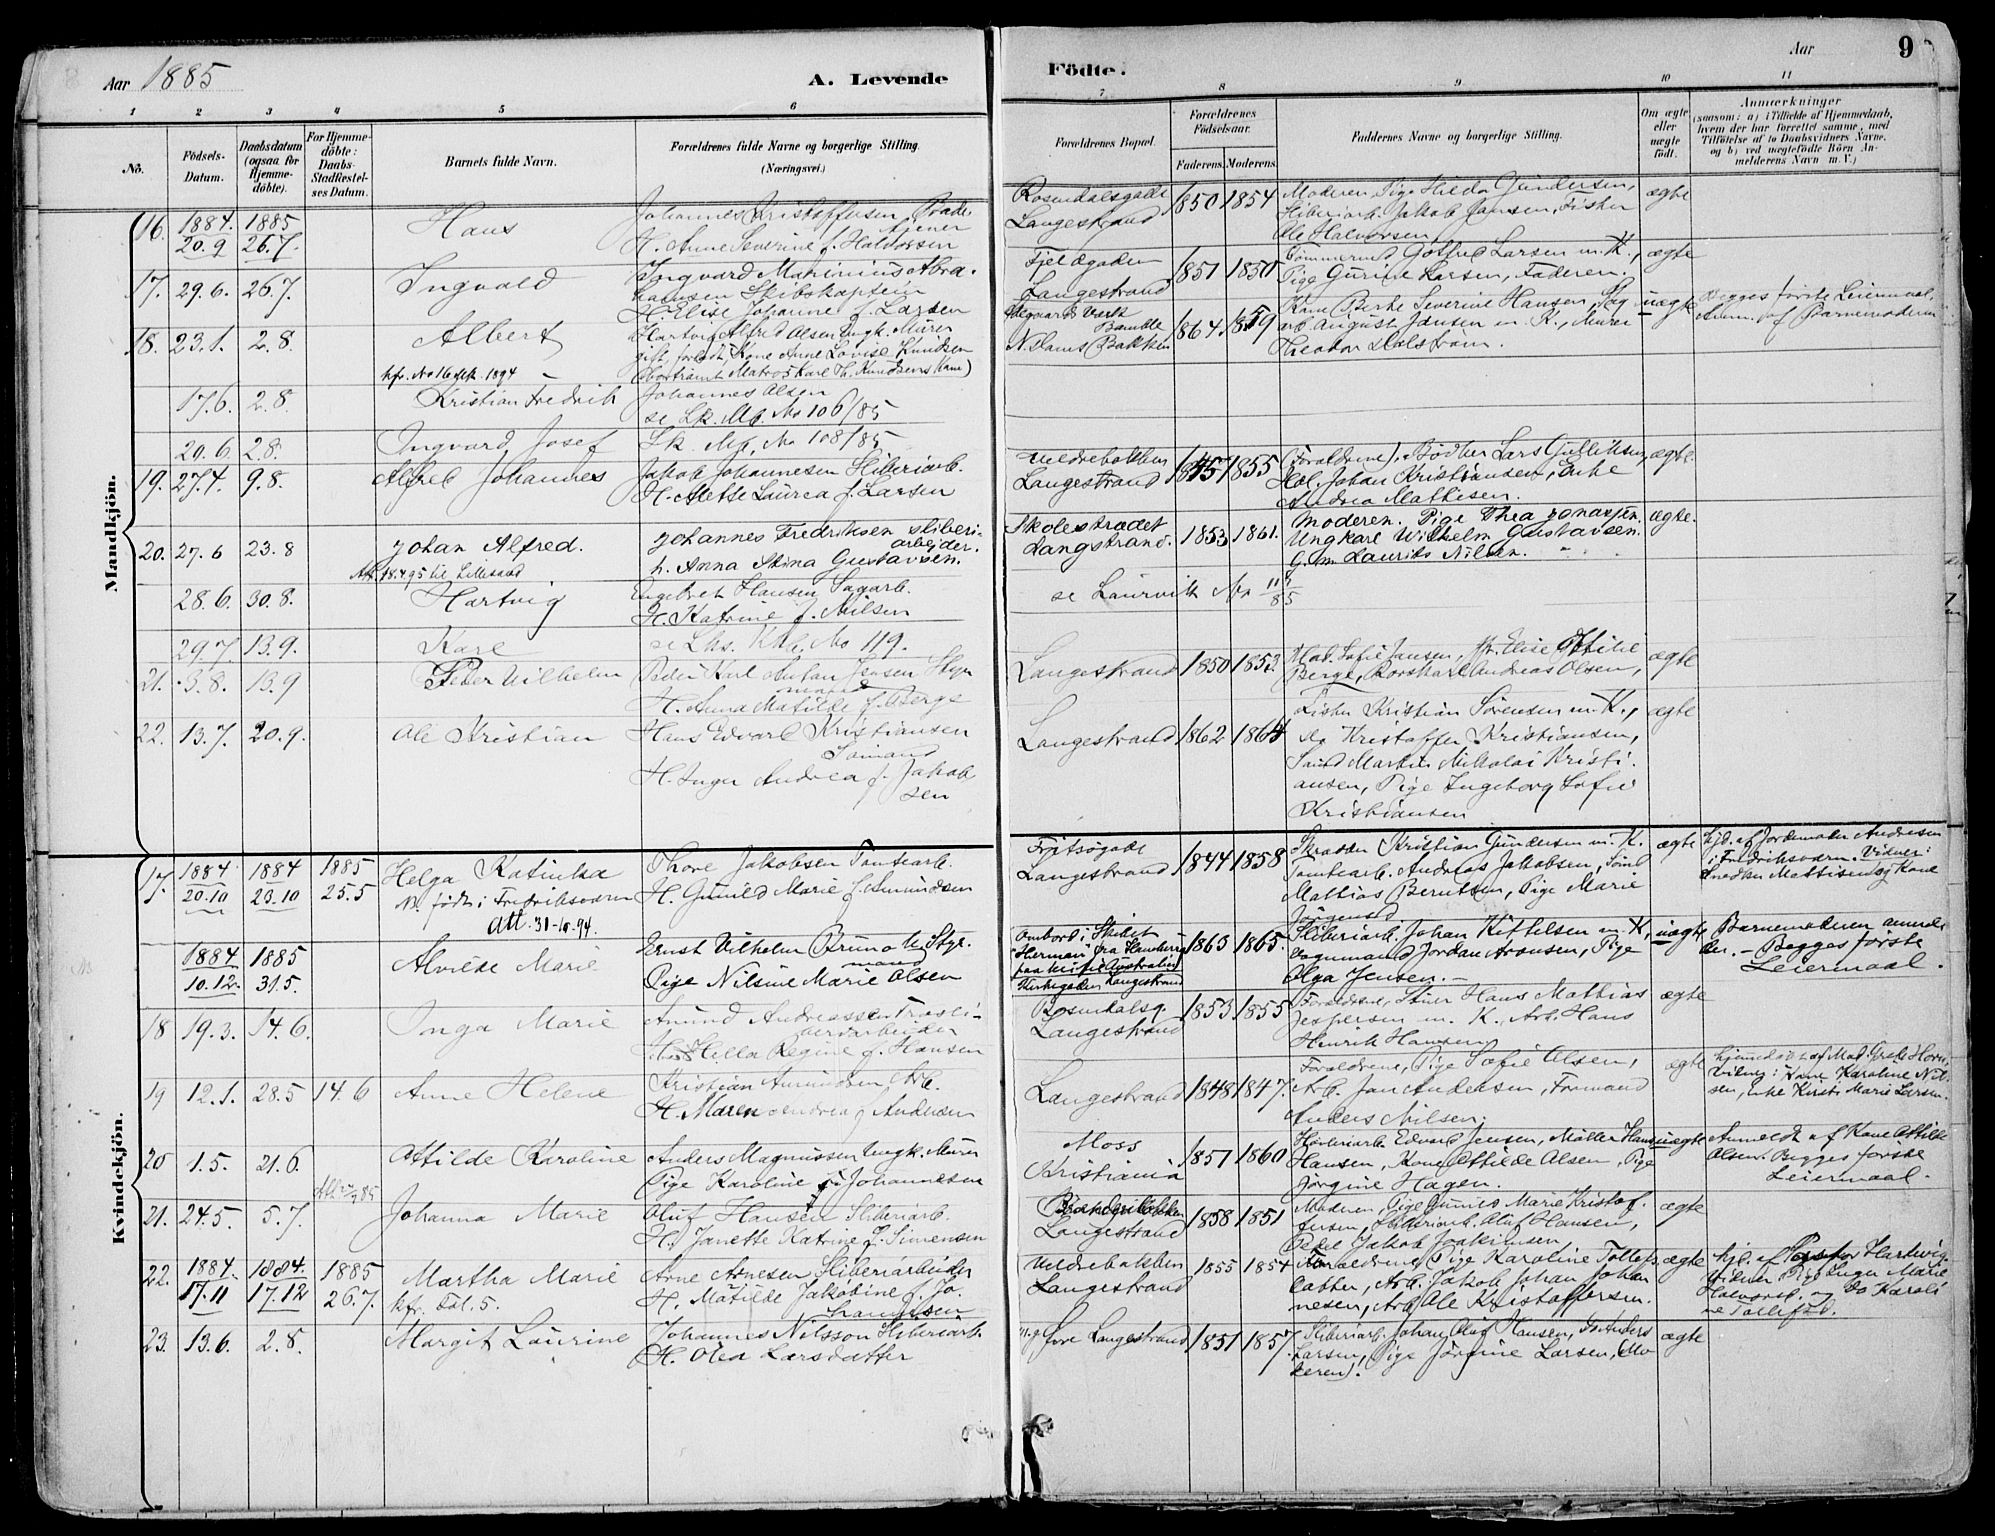 Aar 1885
A. Levende
Födte.
Aar
9
1 2 3 4 5 6 7 8 9 10 11
No.
Födsels-Datum.
Daabsdatum (ogsaa for Hjemmedöbte).
For Hjemmedöbte: Daabs-Stadfæstelses Datum.
Barnets fulde Navn.
Forældrenes fulde Navne og borgerlige Stilling. (Næringsvei.)
Forældrenes Bopæl.
Forældrenes Födselsaar.
Faderens. Moderens.
Faddernes Navne og borgerlige Stilling.
Om ægte eller uægte födt.
Anmærkninger
(saasom: a) i Tilfælde af Hjemmedaab, hvem der har forrettet samme, med Tilföielse af to Daabsvidners Navne, og b) ved uægtefödte Börn Anmelderens Navn m. V.)
Mandkjön.
16. 1884. 20.9 1885 26.7. Hans
Johannes Kristoffersen
H. Anne Severine f. Halvorsen
Rosendalsgade Langestrand
1850 1854
Moderen, Pige Hilda Gundersen,
Sliberiarb. Jakob Jansen, Fisker
Ole Halvorsen
ægte
17. 29.6. 26.7. Ingvald
Ingvard Marinius Abra-
hamsen Skibskaptein
H. Elise Johanne f. Larsen
Langestrand
1851 1850
Tømmermd Gotfred Larsen m. K.,
Pige Gurine Larsen, Faderen.
ægte
18. 23.1. 2.8. Albert
kfr. No 16
Hartvig Alfred Olsen Ungk. Murer
gift forladt Kone Anne Lovise Knudsen
(bortrømt Matros Karl Th. Knudsens Kone)
Bamble
1864 1859
Kone Berte Severine Hansen, Sag
arb August Jansen m. K., Murer
Theodor
uægte
Begges første Leiermaal.
Anm. af Barnemoderen
17.6. 2.8. Kristian Fredrik
Johannes Olsen
se Lk. Mb. No 106/85
20.6. 2.8. Ingvard Josef
Lk. Mb. No 108/85
19. 27.4. 9.8. Alfred Johannes
Jakob Johannesen Sliberiarb.
H. Mette Laurea f. Larsen
Langestrand
1845 1855
(Forældrene), Bødker Lars Gulliksen,
Johan Kristiansen, Enke
Andrea Mathisen.
ægte.
20. 27.6 23.8 Johan Alfred.
Johannes Fredriksen sliberi-
arbeider.
h. Anna Stina Gustavsen.
Skolestrædet Langstrand.
1853 1861.
Moderen. Pige Thea Jonassen.
Ungkarl Wilhelm Gustavsen.
G.m. Laurits Nilsen.
ægte.
28.6. 30.8. Hartvig
Engebret Hansen Sagarb.
H. Katrine f. Nilsen
se Laurvik No
29.7. 13.9. Karl
No 119.
21. 3.8. 13.9 Peder Vilhelm
Peder Karl Anton Jensen Styr
mand
H. Anna Matilde f. Berge
Langestrand
1850 1853
Mad. Sofie Jansen, Fr. Elise Otilie
Berge, Andreas Olsen,
ægte
22. 13.7. 20.9. Ole Kristian
Hans Edvard Kristiansen
Sømand
H. Inger Andrea f. Jakob
sen
Langestrand
1862 1864
Fisker Kristian Sørensen m. K.,
Kristoffer Kristiansen,
Sømd Martin Nikolai Kristi
ansen, Pige Ingeborg Sofie
Kristiansen
ægte
Kvindekjön.
17. 1884 20.10 1884 23.10 1885 25.5 Helga Katinka
N. født i Fredriksværn
Att. 31-10-94.
Thore Jakobsen Tomtearb.
H. Gunild Marie f. Amundsen
Langestrand
1844 1858
Skrædder Kristian Gundersen m. K.
Tomtearb. Andreas Jakobsen, Sømd
Mathias Berntsen, Pige Marie
Jørgensen
ægte
hjd. af Jordemoder Andresen
i Fredriksværn. Vidner:
Mattisen og Kone
1884 10.12. 1885 31.5. Alvilde Marie
Ernst Vilhelm Bruno Uk. Styr-
mand
Pige Nilsine Marie Olsen
Ombord i Skibet
Herman fra Hamburg
Langestrand
1863 1865.
Sliberiarb. Johan Kittelsen m. K.,
Vognmand Jordan Aronsen, Pige
Olga Jensen.
uægte
Barnemoderen anmel
der. - Begges første
Leiermaal.
18 19.3. 14.6. Inga Marie
Amund Andreassen Træsli-
beriarbeider
Hella Regine f. Hansen
Rosendalsg. Langestrand
1853 1855
Forældrene, Hans Mathias
Jespersen m. K., Arb. Hans
Henrik Hansen
ægte
19 12.1. 28.5 14.6 Anne Helene
Kristian Amundsen Arb.
H. Maren Andrea f. Andersen
Langestrand
1848 1847.
Forældrene, Pige Sofie Olsen,
Arb. Jan Andersen, Formand
Anders Nilsen.
ægte
hjemdøbt af Mad. Grete Horn,
Vidner: Kone Karoline Nil-
sen, Enke Kirsti Marie Larsen.
20 1.5. 21.6. Attilde Karoline
Anders Magnussen Ungk. Murer
Pige Karoline Johannesen
Moss
Kristiania
1857 1860
Høvleriarb. Edvard Jensen, Møller Hans
Hansen, Kone Attilde Olsen, Pige
Jørgine Hagen.
uægte
Anmeldt af Kone Attilde
Olsen. Begges første
Leiermaal.
21. 24.5. 5.7. Johanna Marie
Oluf Hansen Sliberiarb.
H. Janette Katrine f. Simensen
Langestrand
1858 1851
Moderen, Pige Gunild Marie Kristof-
fersen, Sliberiarb. Oluf Hansen,
Jakob Joakimsen
ægte
22. 1884. 17.11 1884. 17.12 1885 26.7. Martha Marie
kfr. Fol. 5.
Arne Arnesen Sliberiarbeider
H. Matilde Jakobine f. Jo-
hannesen
Langestrand
1855 1854
Forældrene, Pige Karoline Tollefs-
datter, Arb. Jakob Johan Johan
nesen, Arb. Ole Kristoffersen.
ægte
hjd. af Pastor Hartvig
Vidner Pige Inger Marie
Halvorsd. og do Karoli
ne Tollefsd.
23. 13.6. 2.8. Margit Laurine
Johannes Nilsson Sliberiarb.
H. Olea Larsdatter
Øvre Langestrand
1851 1857.
Sliberiarb. Johan Oluf Hansen, do Anders
Larsen, Pige Jørgine Larsen, (Mo
deren).
ægte